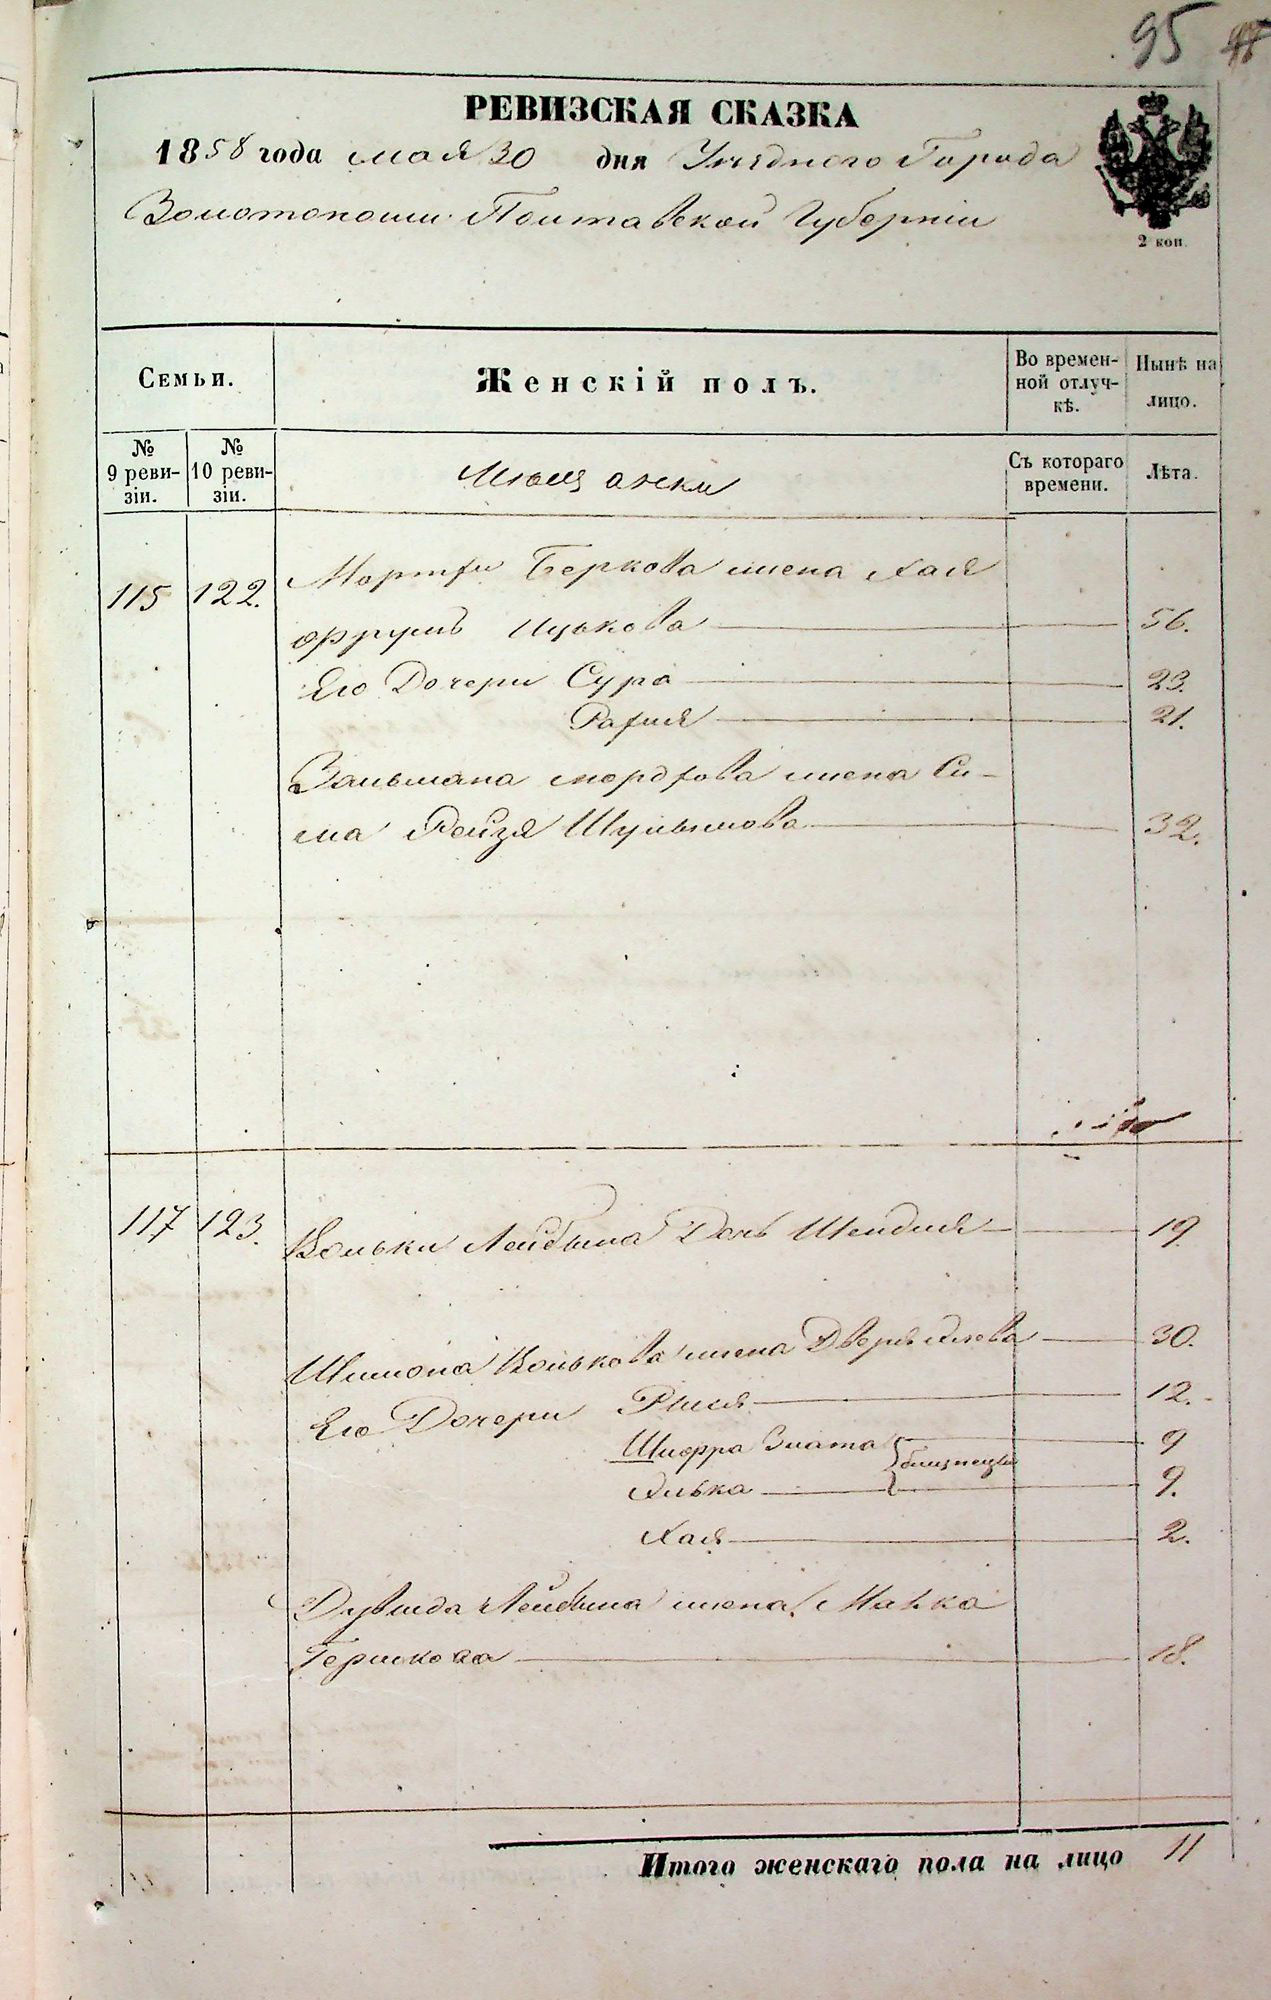 95
РЕВИЗСКАЯ СКАЗКА
1858 года мая 30 дня Уѣзднаго Города
Золотоноши Полтавской Губерніи
2 коп.
Семьи.
Женскій полъ.
Во времен-
ной отлуч-
кѣ.
Нынѣ на
лицо.
№
9 реви-
зіи.
№
10 реви-
зіи.
Мещанки
Съ котораго
времени.
Лѣта.
115 122. Беркова жена Хая
Фрумъ Ицькова 56.
Его Дочери Сура 23.
21.
Зальмана Мордхова жена Си-
ма Рейзя Шульимова 32.
117 123. Вольки Лейбына Дочь Шендля 19
Шимона Волькова жена Двера 30.
Его Дочери Рыся 12.
Шифра Злата 9
близнецы
Элька 9.
Хая 2.
Дувида Лейбына жена Малка
Гершкова 18.
Итого женскаго пола на лицо 11